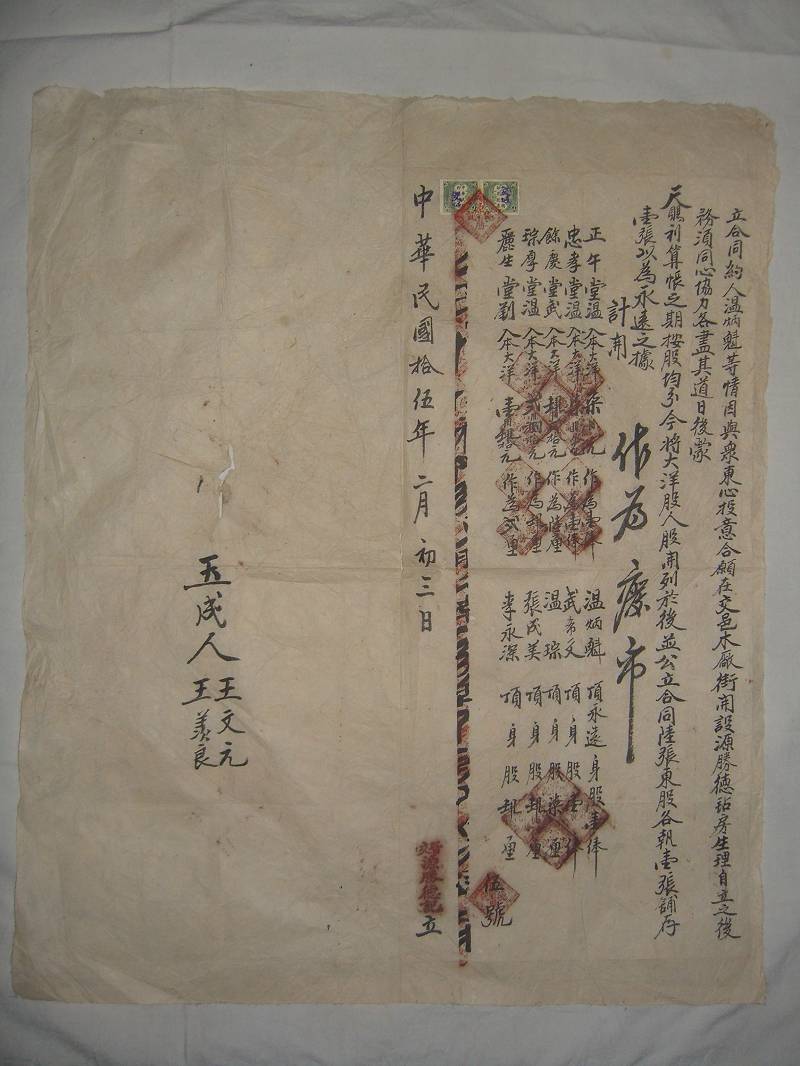 立合同約人溫炳魁等情因與衆東心投意合願在交邑木厰街開設源勝德記房生理自立之後
務須同心協力各盡其道日後蒙
天賜利算帳之期按股均分今將大洋股人股開列於後並公立合同陸張東股各執壹張舖存
壹張以為永遠之據
計開
作為廢布
正午堂溫 入本大洋柒 元作為壹俸 溫炳魁 頂永遠身股壹俸
忠孝堂溫 入本大洋柒 元作為壹俸 武希文 頂身股壹俸
餘慶堂武 入本大洋 拾元作為陸厘 溫琮 頂身股柒厘
琮厚堂溫 入本大洋 拾元作為 厘 張成美 頂身股 厘
麗生堂劉 入本大洋壹 拾元作為貳厘 李永深 頂身股 厘
伍號
中華民國拾伍年二月初三日 源勝德記 立
玉成人 王文元
王美良